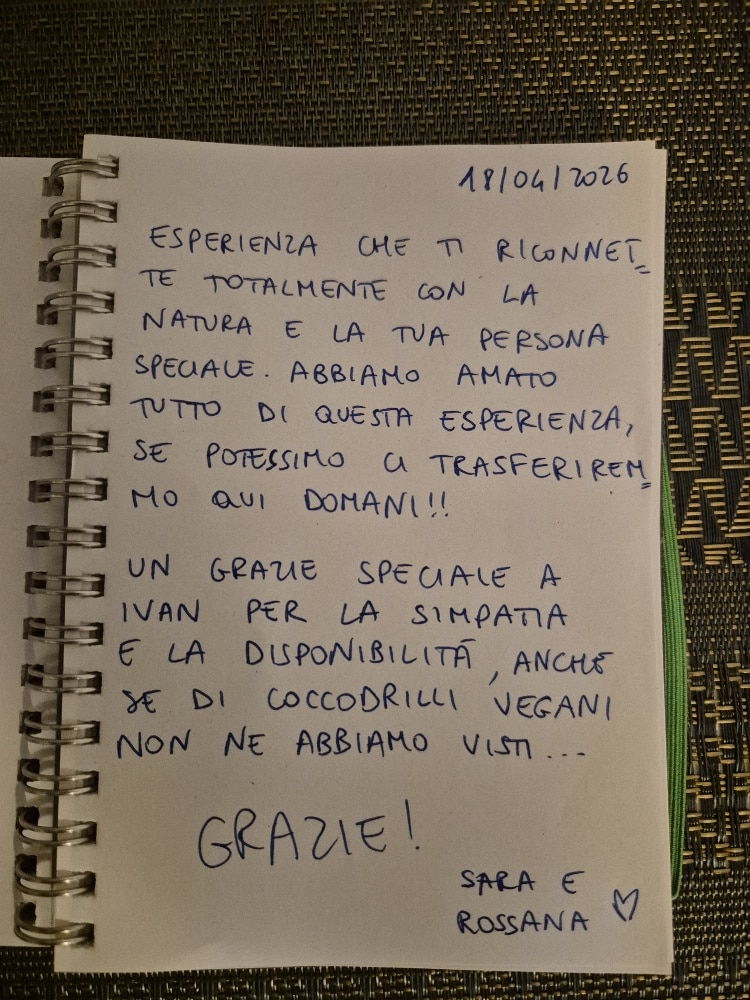 18/04/2026
ESPERIENZA CHE TI RICONNET=
TE TOTALMENTE CON LA
NATURA E LA TUA PERSONA
SPECIALE. ABBIAMO AMATO
TUTTO DI QUESTA ESPERIENZA,
SE POTESSIMO CI TRASFERIREM=
MO QUI DOMANI!!
UN GRAZIE SPECIALE A
IVAN PER LA SIMPATIA
E LA DISPONIBILITÀ, ANCHE
SE DI COCCODRILLI VEGANI
NON NE ABBIAMO VISTI...
GRAZIE!
SARA E
ROSSANA ♡